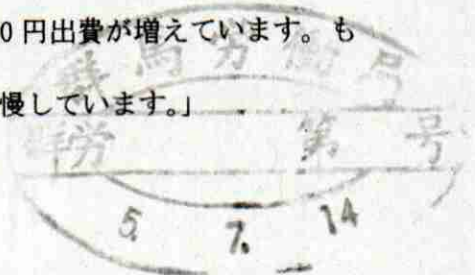 0円出費が増えています。も
慢しています。」
群馬労働局
群労 第 号
5. 7. 14